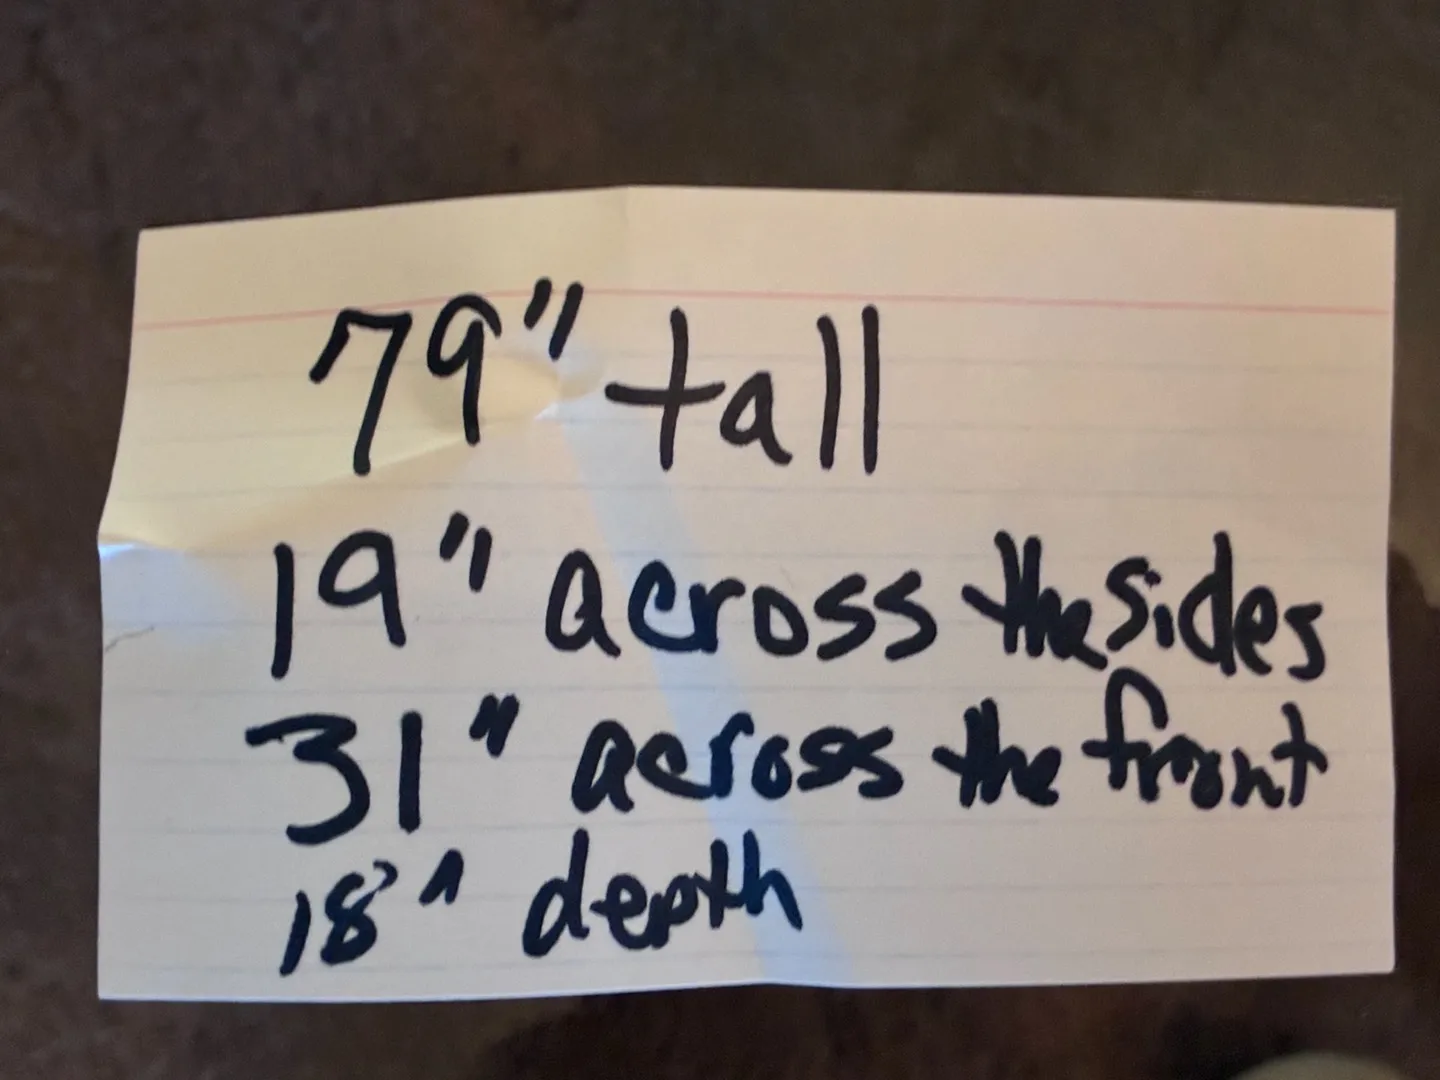 79" tall
19" across the sides
31" across the front
18" depth